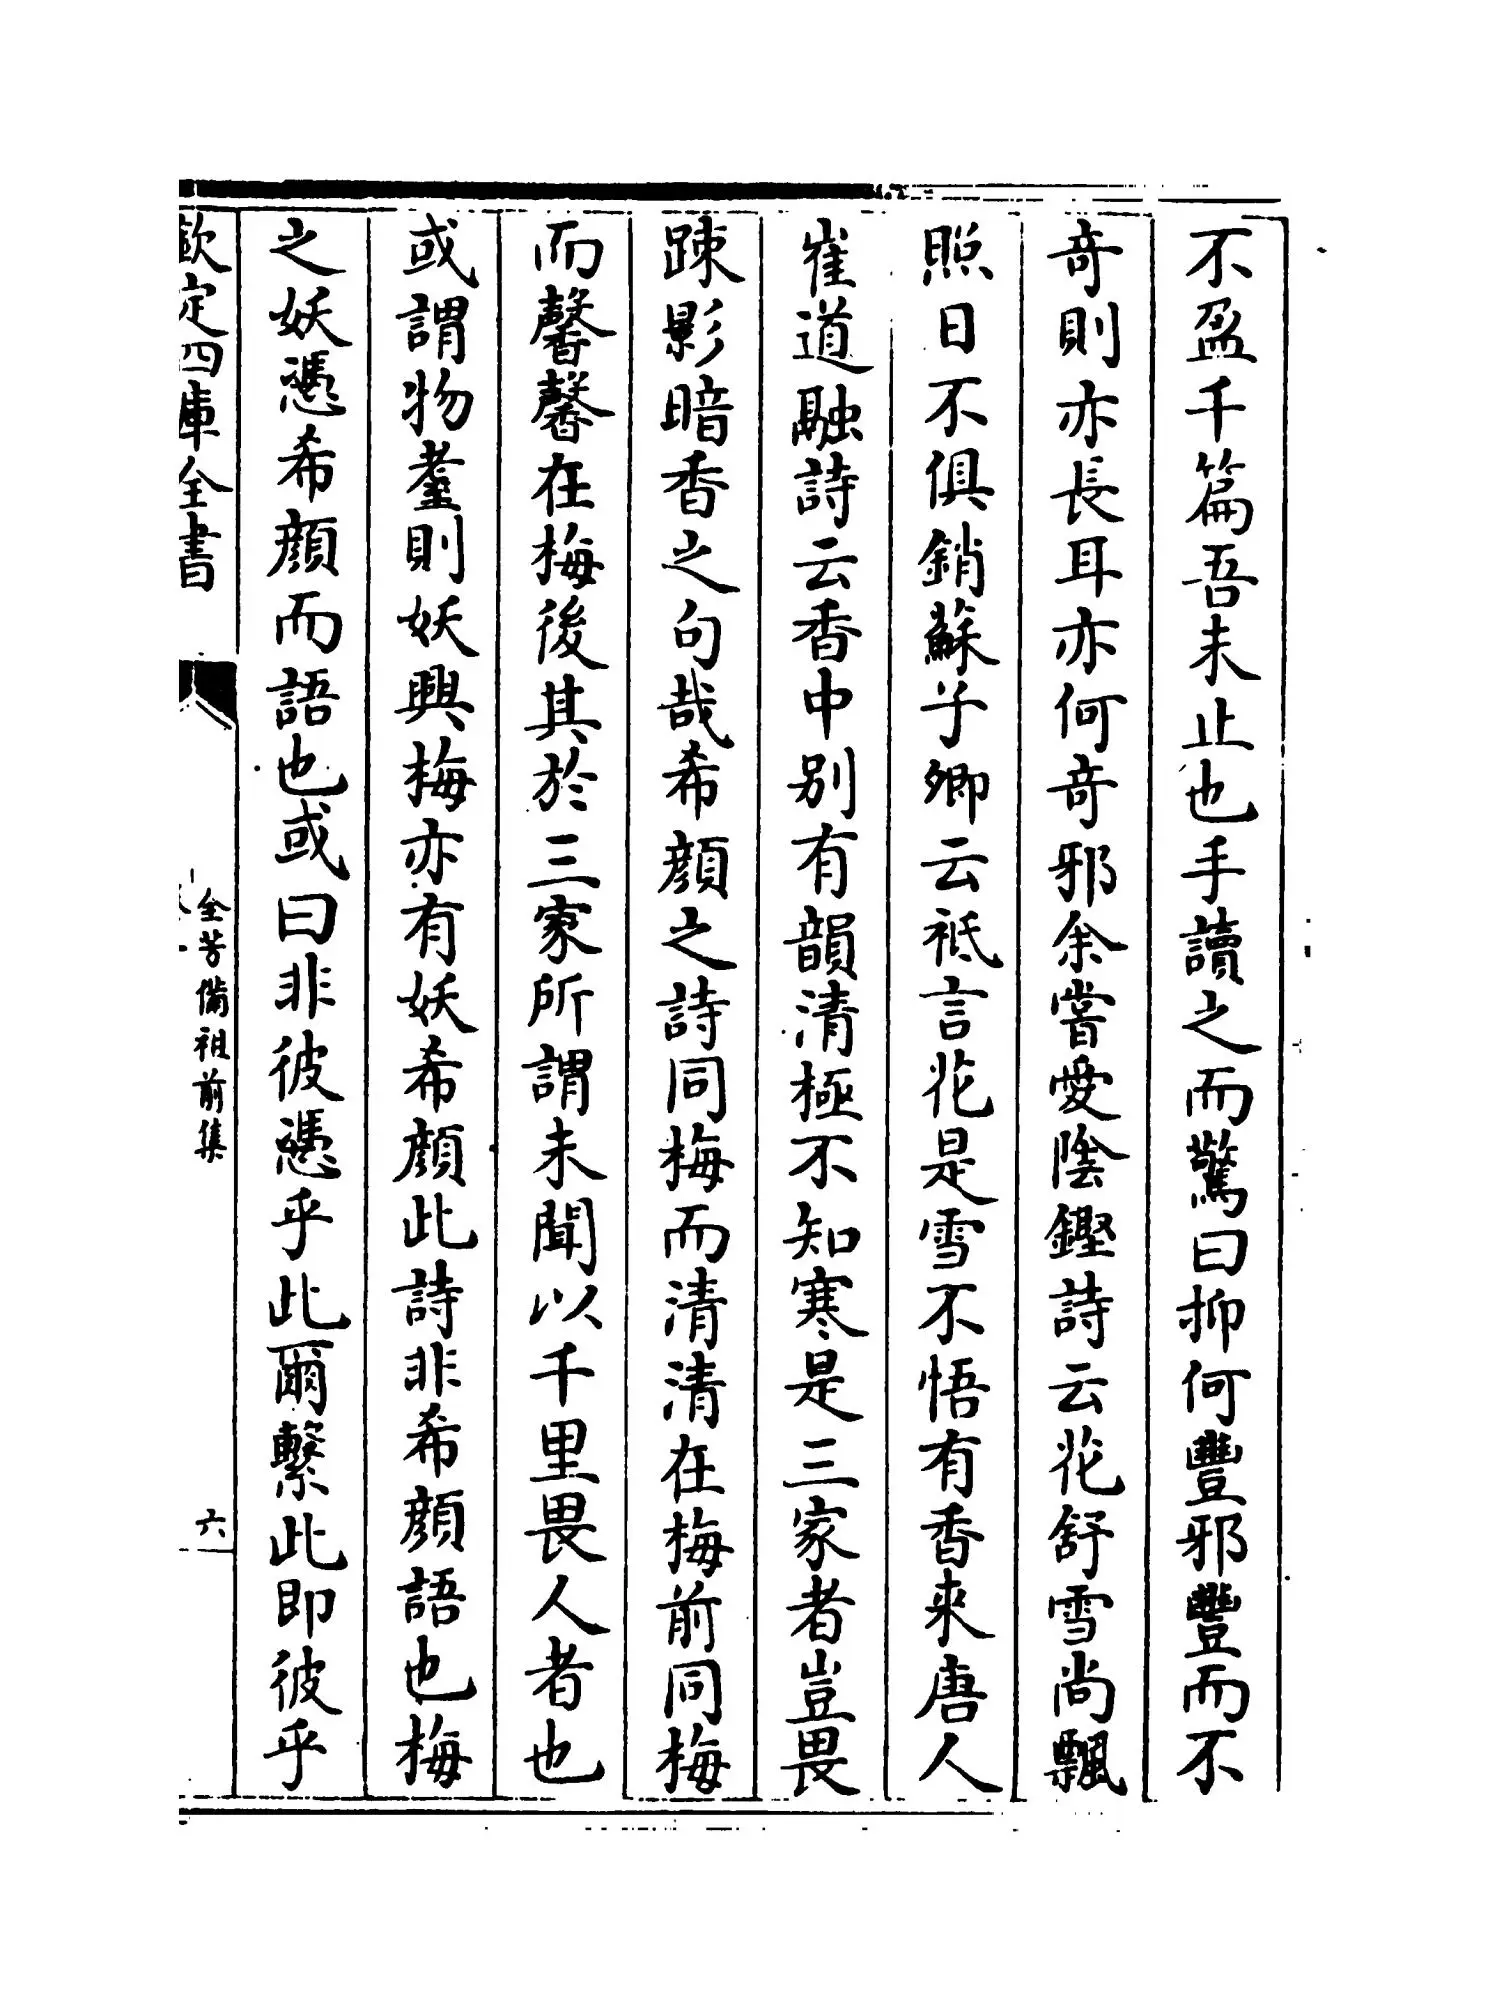 不盈千篇吾未止也手讀之而驚曰抑何豐邪豐而不
奇則亦長耳亦何奇邪余嘗愛陰鏗詩云花舒雪尚飄
照日不俱銷蘇子卿云祇言花是雪不悟有香來唐人
崔道融詩云香中别有韻清極不知寒是三家者豈畏
踈影暗香之句哉希顔之詩同梅而清清在梅前同梅
而馨馨在梅後其於三家所謂未聞以千里畏人者也
或謂物耋則妖興梅亦有妖希顔此詩非希顔語也梅
之妖憑希顔而語也或曰非彼憑乎此爾繫此即彼乎
欽定四庫全書
全芳備祖前集
六